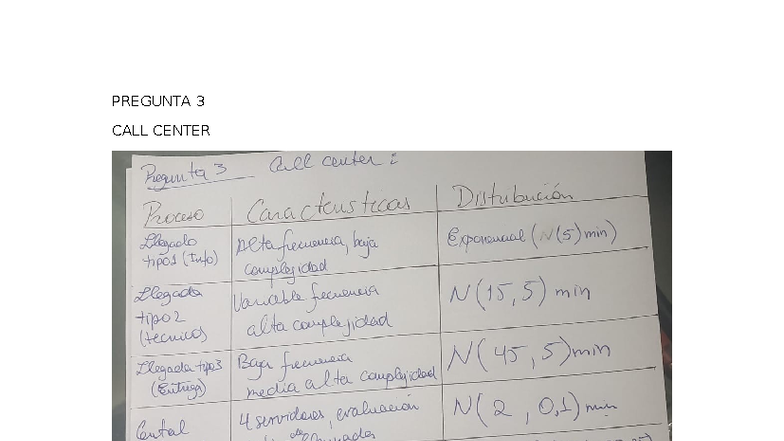 PREGUNTA 3
CALL CENTER
Pregunta 3 Call center :
Proceso Características Distribución
Llegada Alta frecuencia, baja Exponencial (N(5) min)
tipo1 (Info) complejidad
Llegada Variable frecuencia N(15,5) min
tipo 2 alta complejidad
(técnico)
Llegada tipo3 Baja frecuencia N(45,5) min
(Entrega) media alta complejidad
Central 4 servidores, evaluación N(2, 0,1) min
de llamadas